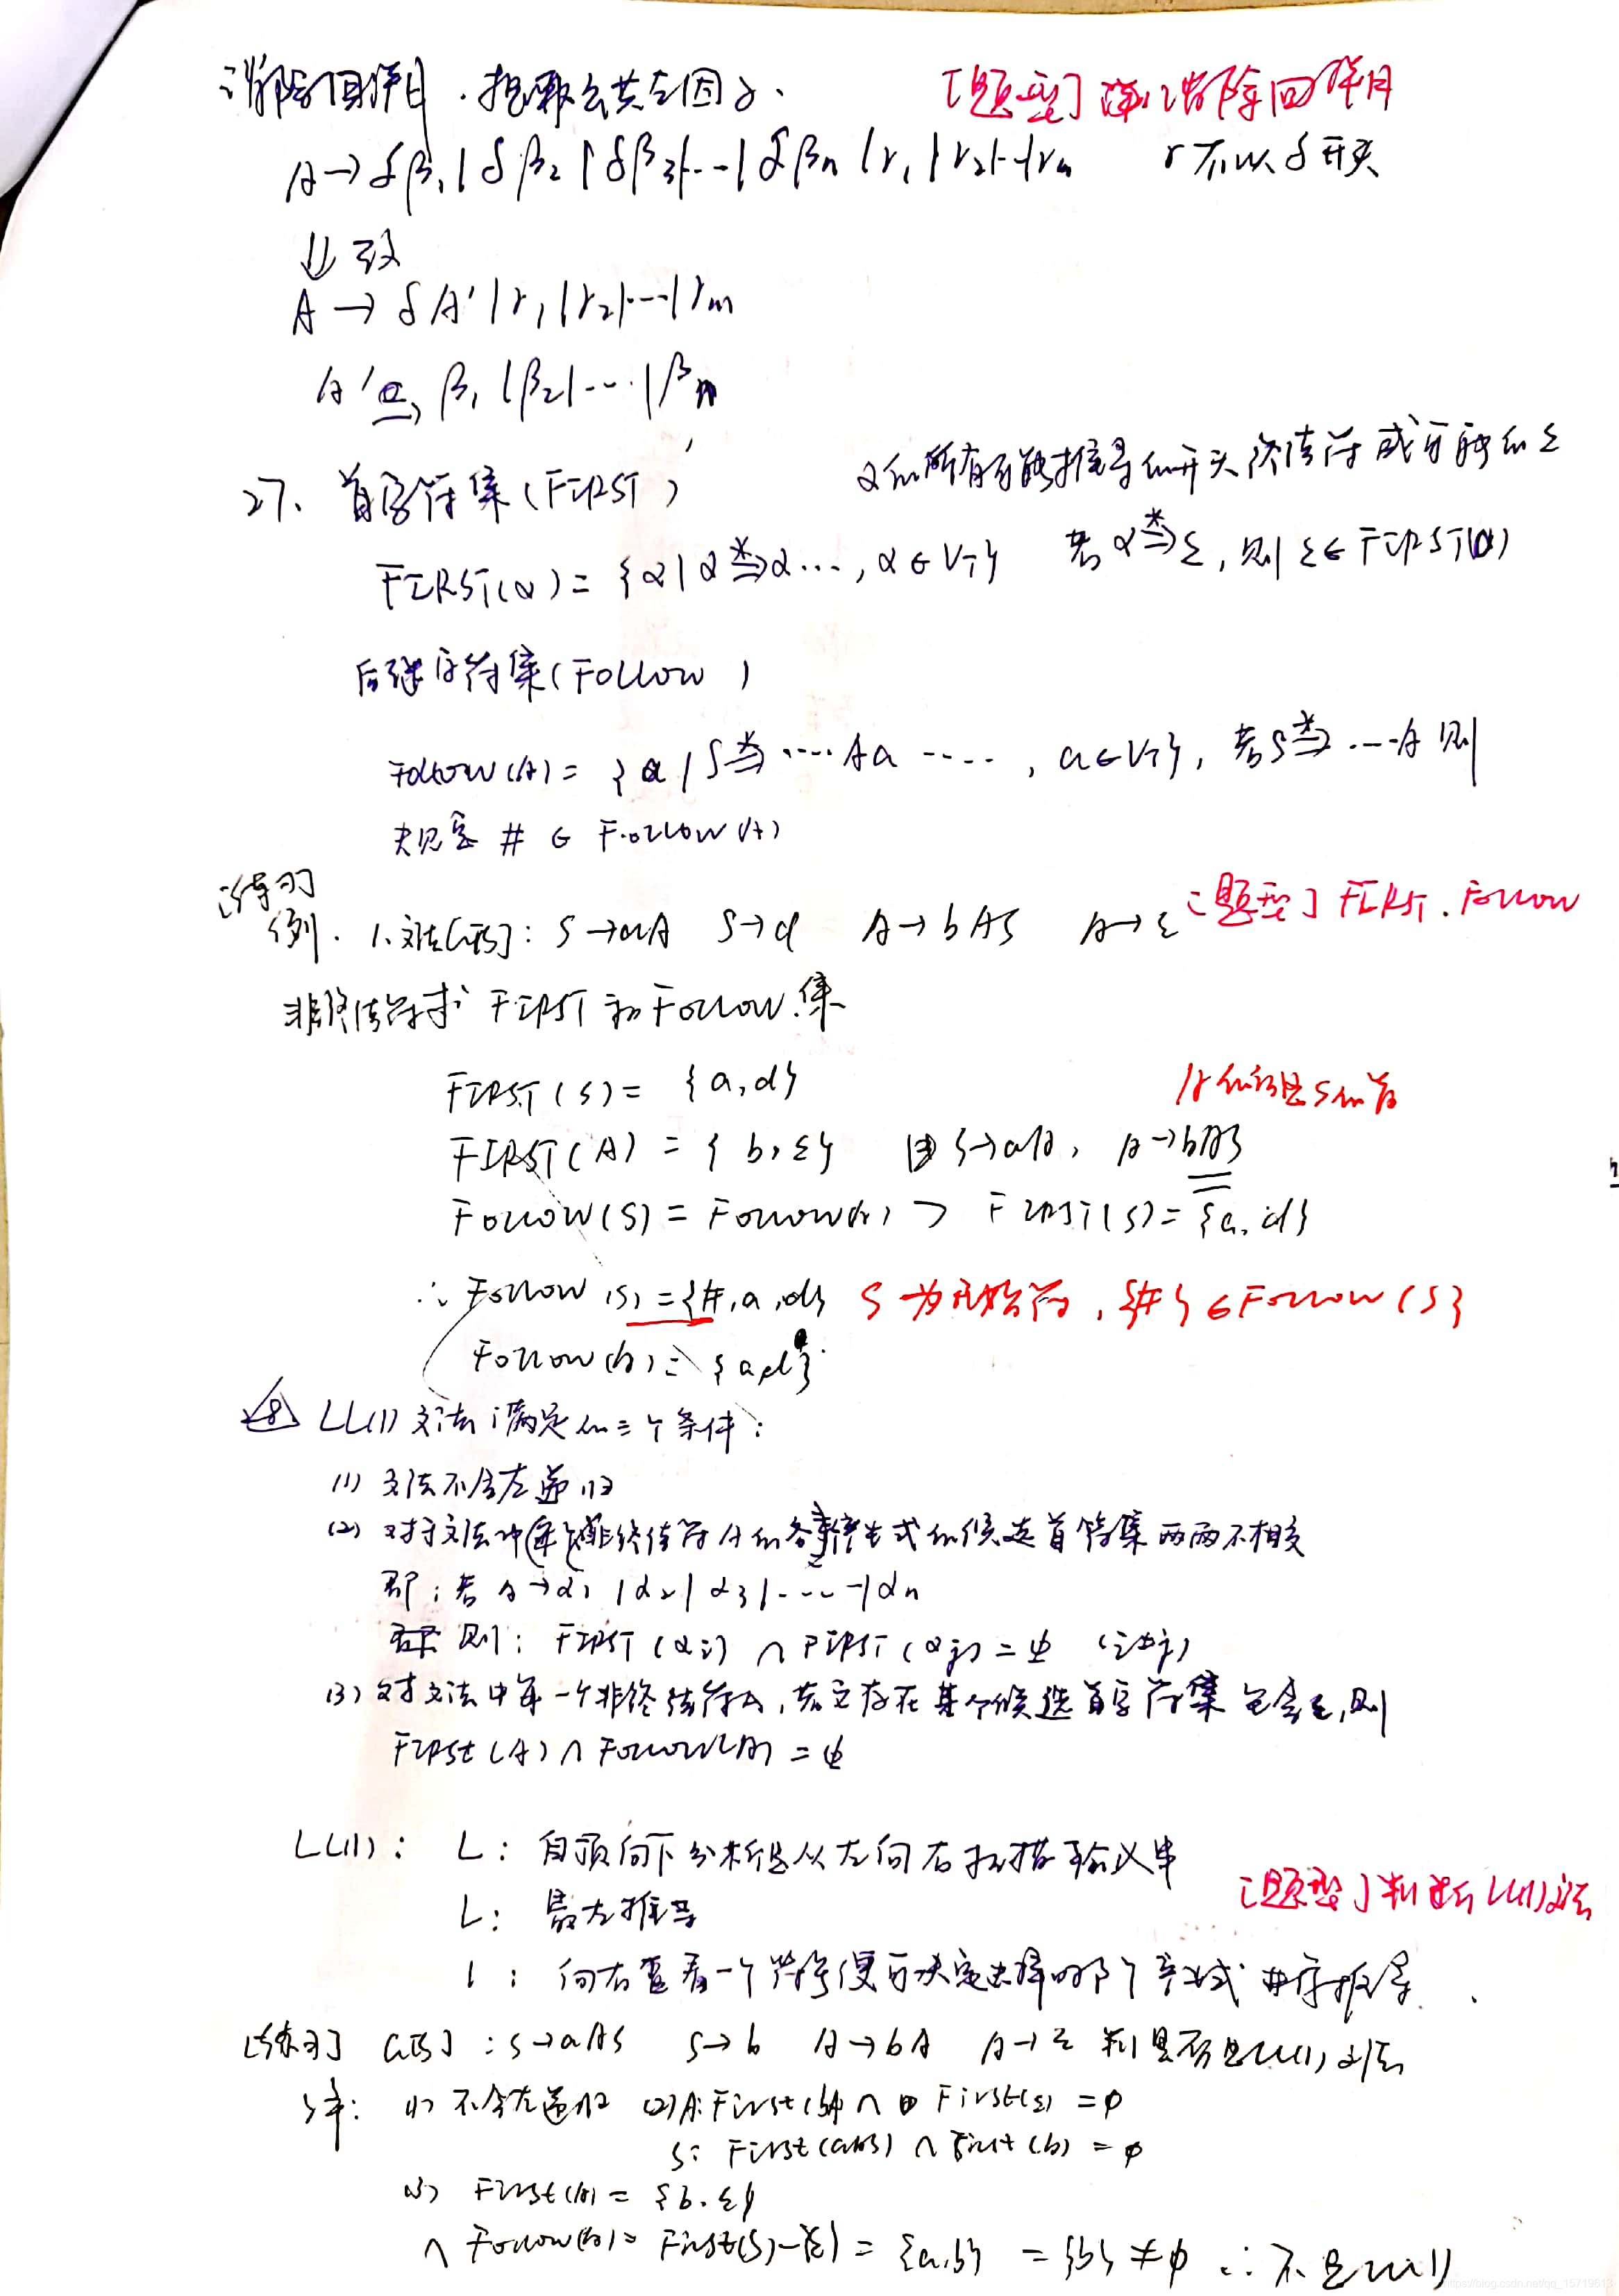 消除回溯, 提取公共左因子. [题型] 消除回溯
A→δβ₁|δβ₂|δβ₃|...|δβn|r₁|r₂|...|rn r不以δ开头
⇓ 改
A→δA'|r₁|r₂|...|rm
A'→β₁|β₂|...|βn
α的所有可能推导的开头终结符或可能的ε
27、首字符集(FIRST)
FIRST(α)={α|α*⇒α...,α∈VT} 若α*⇒ε,则ε∈FIRST(α)
后继字符集(Follow)
Follow(A)={a|S*⇒....Aa....,a∈VT},若S*⇒....A则
规定#∈Follow(A)
[练习] [题型]FIRST.Follow
例.1.文法G[S]: S→aA S→d A→bAS A→ε
非终结符求FIRST和Follow集
FIRST(S)={a,d}
FIRST(A)={b,ε} 由S→aA, A→bAS
Follow(S)=Follow(A)⊃FIRST(S)={a,d}
∴Follow(S)={#,a,d} S为开始符,{#}∈Follow(S)
Follow(A)={a,d}
28 LL(1)文法满足的三个条件:
(1)文法不含左递归
(2)对于文法中每个非终结符A的各产生式的候选首符集两两不相交
即:若A→α₁|α₂|α₃|....|αn
则:FIRST(αi)∩FIRST(αj)=φ (i≠j)
(3)对文法中每一个非终结符A,若它存在某个候选首字符集包含ε,则
First(A)∩Follow(A)=φ
LL(1): L:自顶向下分析是从左向右扫描输入串
L:最左推导 [题型]判断LL(1)文法
1:向右查看一个符号便可决定选择哪个产生式进行推导.
[练习] G[S]:S→aAS S→b A→bA A→ε 判是否是LL(1)文法
解:(1)不含左递归 (2)A:First(bA)∩First(ε)=φ
S:First(aAS)∩First(b)=φ
(3) First(A)={b.ε}
∩Follow(A)=First(S)-{ε}={a,b} ={b}≠φ ∴不是LL(1)
https://blog.csdn.net/qq_15719613